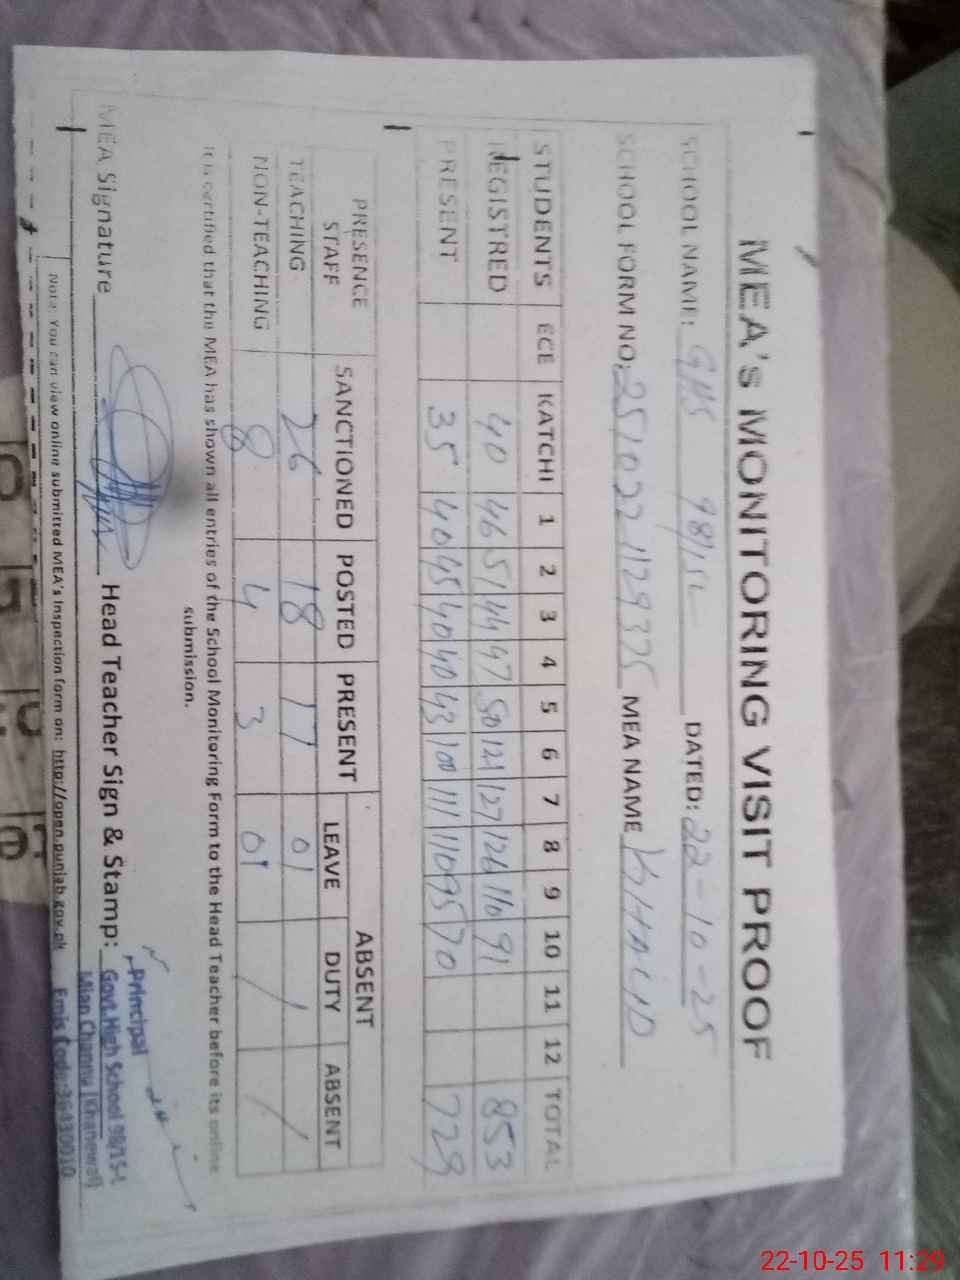 MEA's MONITORING VISIT PROOF
SCHOOL NAME: GHS 98/15L DATED: 22-10-25
SCHOOL FORM NO: 2510221129375 MEA NAME KHALID
STUDENTS ECE KATCHI 1 2 3 4 5 6 7 8 9 10 11 12 TOTAL
REGISTRED 40 46 51 44 47 50 121 127 126 110 91 853
PRESENT 35 40 45 40 40 43 100 111 110 95 70 729
PRESENCE ABSENT
STAFF SANCTIONED POSTED PRESENT LEAVE DUTY ABSENT
TEACHING 26 18 17 01 /
NON-TEACHING 8 4 3 01 / /
It is certified that the MEA has shown all entries of the School Monitoring Form to the Head Teacher before its online
submission.
MEA Signature Head Teacher Sign & Stamp:
Principal
Govt. High School 98/15-L
Mian Channu (Khanewal)
Emis Code:36330010
Note: You can view online submitted MEA's Inspection form on: http://open.punjab.gov.pk
22-10-25 11:29